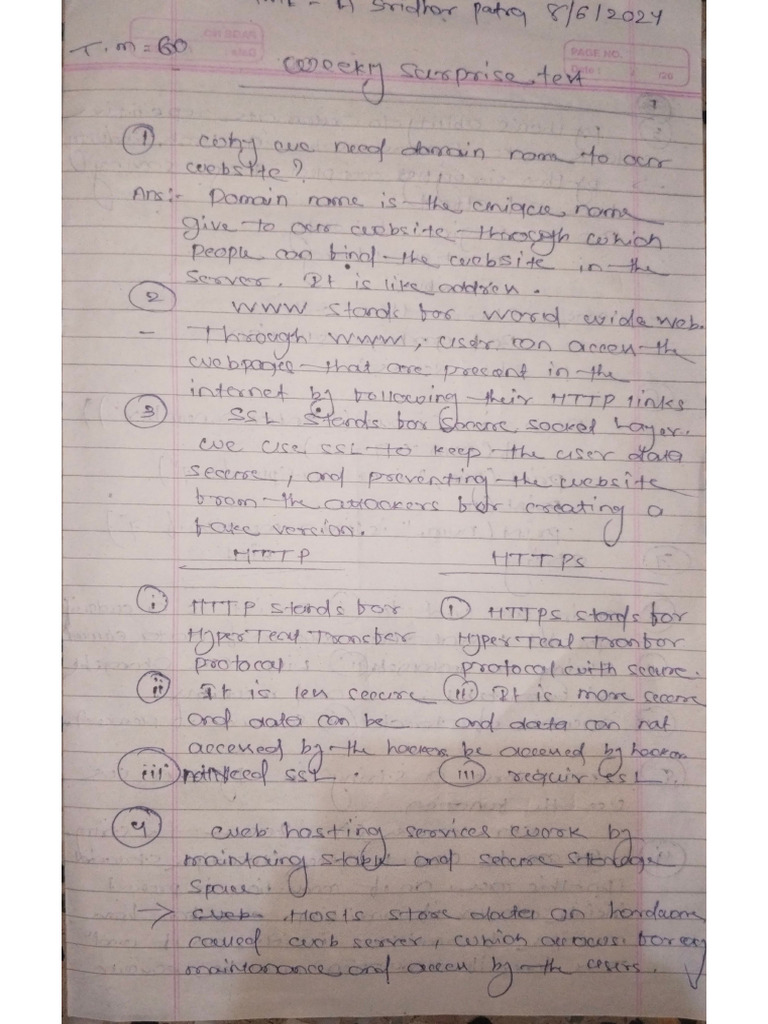 Sridhar Patra 8/6/2024
T.M = 60
PAGE NO.
Date:
Weekly Surprise test
① Why we need domain name to our
website?
Ans:- Domain name is the unique name
give to our website through which
People can find the website in the
server. It is like address.
② WWW stands for World wide web.
- Through WWW, user can access the
webpages that are present in the
internet by following their HTTP links
③ SSL stands for Secure socket Layer.
we use SSL to keep the user data
secure, and preventing the website
from the attackers for creating a
fake version.
HTTP HTTPs
ⓘ HTTP stands for ① HTTPs stands for
Hyper Teal Transfer Hyper Teal Tranfor
protocal protocal with secure.
ⓘⓘ It is less secure ⓘⓘ It is more secure
and data can be and data can not
accessed by the hackers be accessed by hacker
ⓘⓘⓘ Need SSL. ⓘⓘⓘ requir SSL.
④ Web hosting services work by
maintaing stable and secure storage
space.
→ Web Hosts store data on hardware
called web server, which allows for easy
maintanance and access by the users.